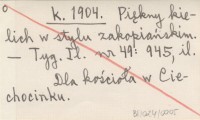 k. 1904. Piękny kie-
lich w stylu zakopiańskim.
— Tyg. Il. nr 49: 945, il.
Dla kościoła w Cie-
chocinku.